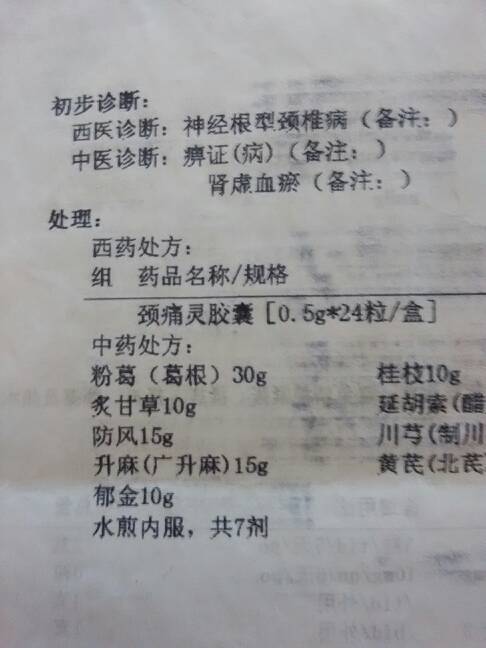 初步诊断：
西医诊断：神经根型颈椎病（备注：）
中医诊断：痹证(病)（备注：）
肾虚血瘀（备注：）
处理：
西药处方：
组 药品名称/规格
颈痛灵胶囊[0.5g*24粒/盒]
中药处方：
粉葛（葛根）30g 桂枝10g
炙甘草10g 延胡索(醋
防风15g 川芎(制川
升麻(广升麻)15g 黄芪(北芪
郁金10g
水煎内服，共7剂